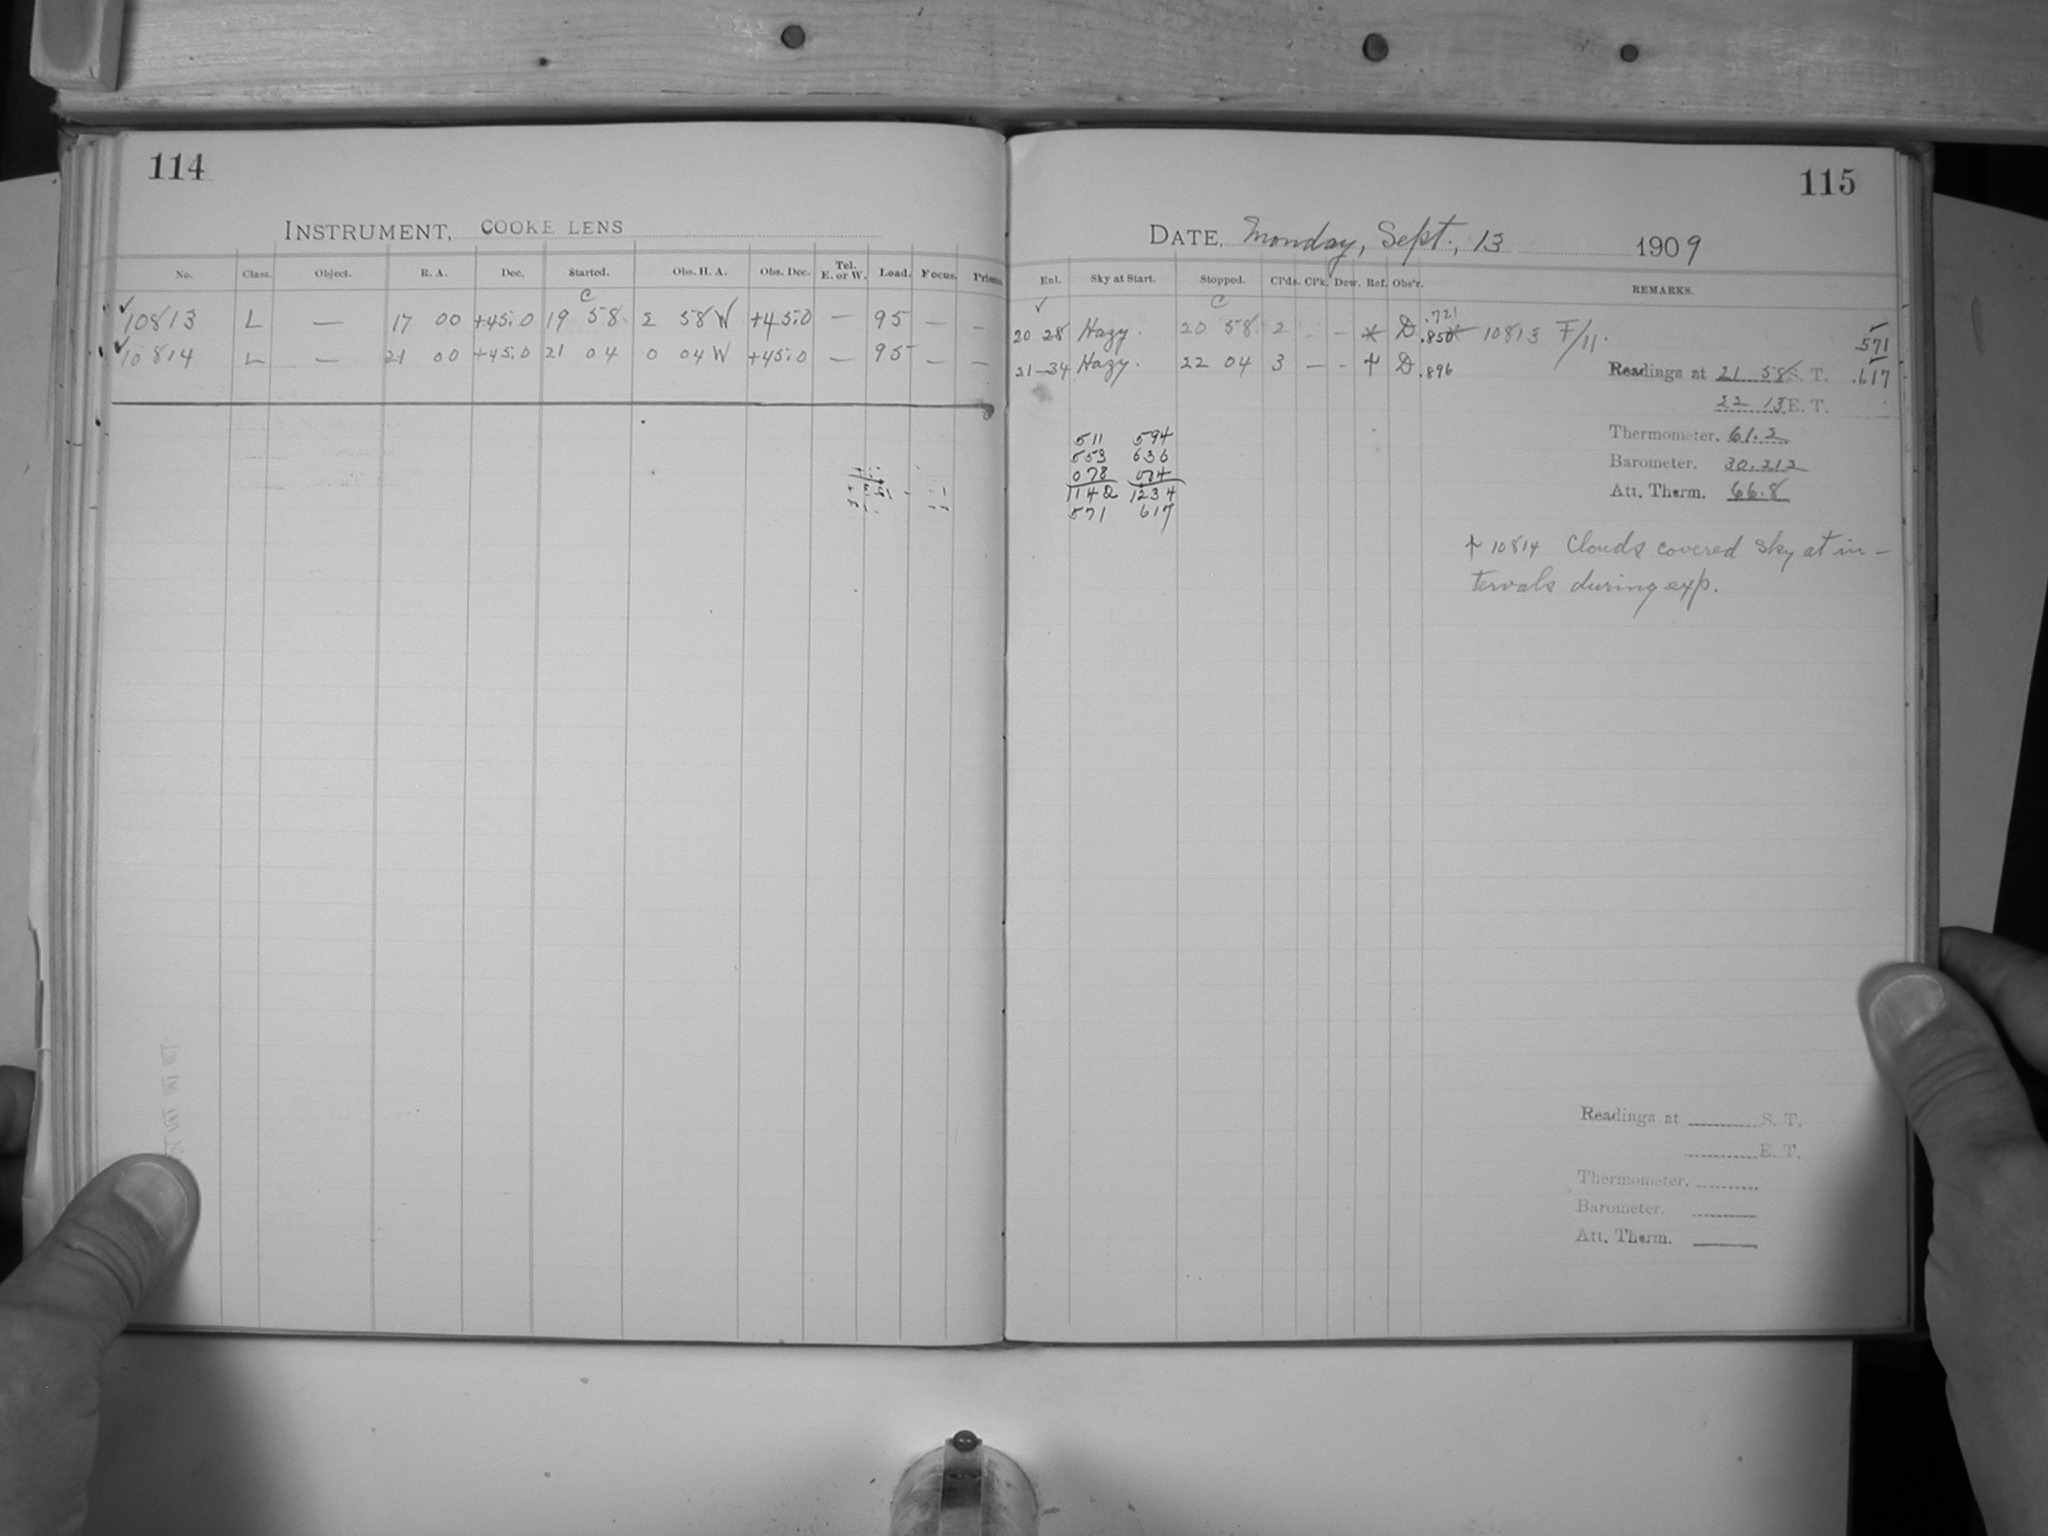 114
INSTRUMENT, COOKE LENS
No. Class. Object. R. A. Dec. Started. Obs. H. A. Obs. Dec. Tel. E. or W. Load. Focus. Prisms.
C
✓10813 L — 17 00 +45.0 19 58 2 58 W +45.0 — 95 — —
✓10814 L — 21 00 +45.0 21 04 0 04 W +45.0 — 95 — —
115
DATE, Monday, Sept., 13 1909
Enl. Sky at Start. Stopped. Cl'ds. Cl'k. Dew. Ref. Obs'r. REMARKS.
✓ C .721
20 28 Hazy. 20 58 2 - - * D .850 * 10813 F/11. .571
21-34 Hazy. 22 04 3 - - † D .896 Readings at 21 58 S. T. .617
22 13 E. T.
Thermometer. 61.2
Barometer. 30.212
Att. Therm. 66.8
511 594
553 636
078 004
1142 1234
571 617
† 10814 Clouds covered sky at in-
tervals during exp.
Readings at S. T.
E. T.
Thermometer.
Barometer.
Att. Therm.